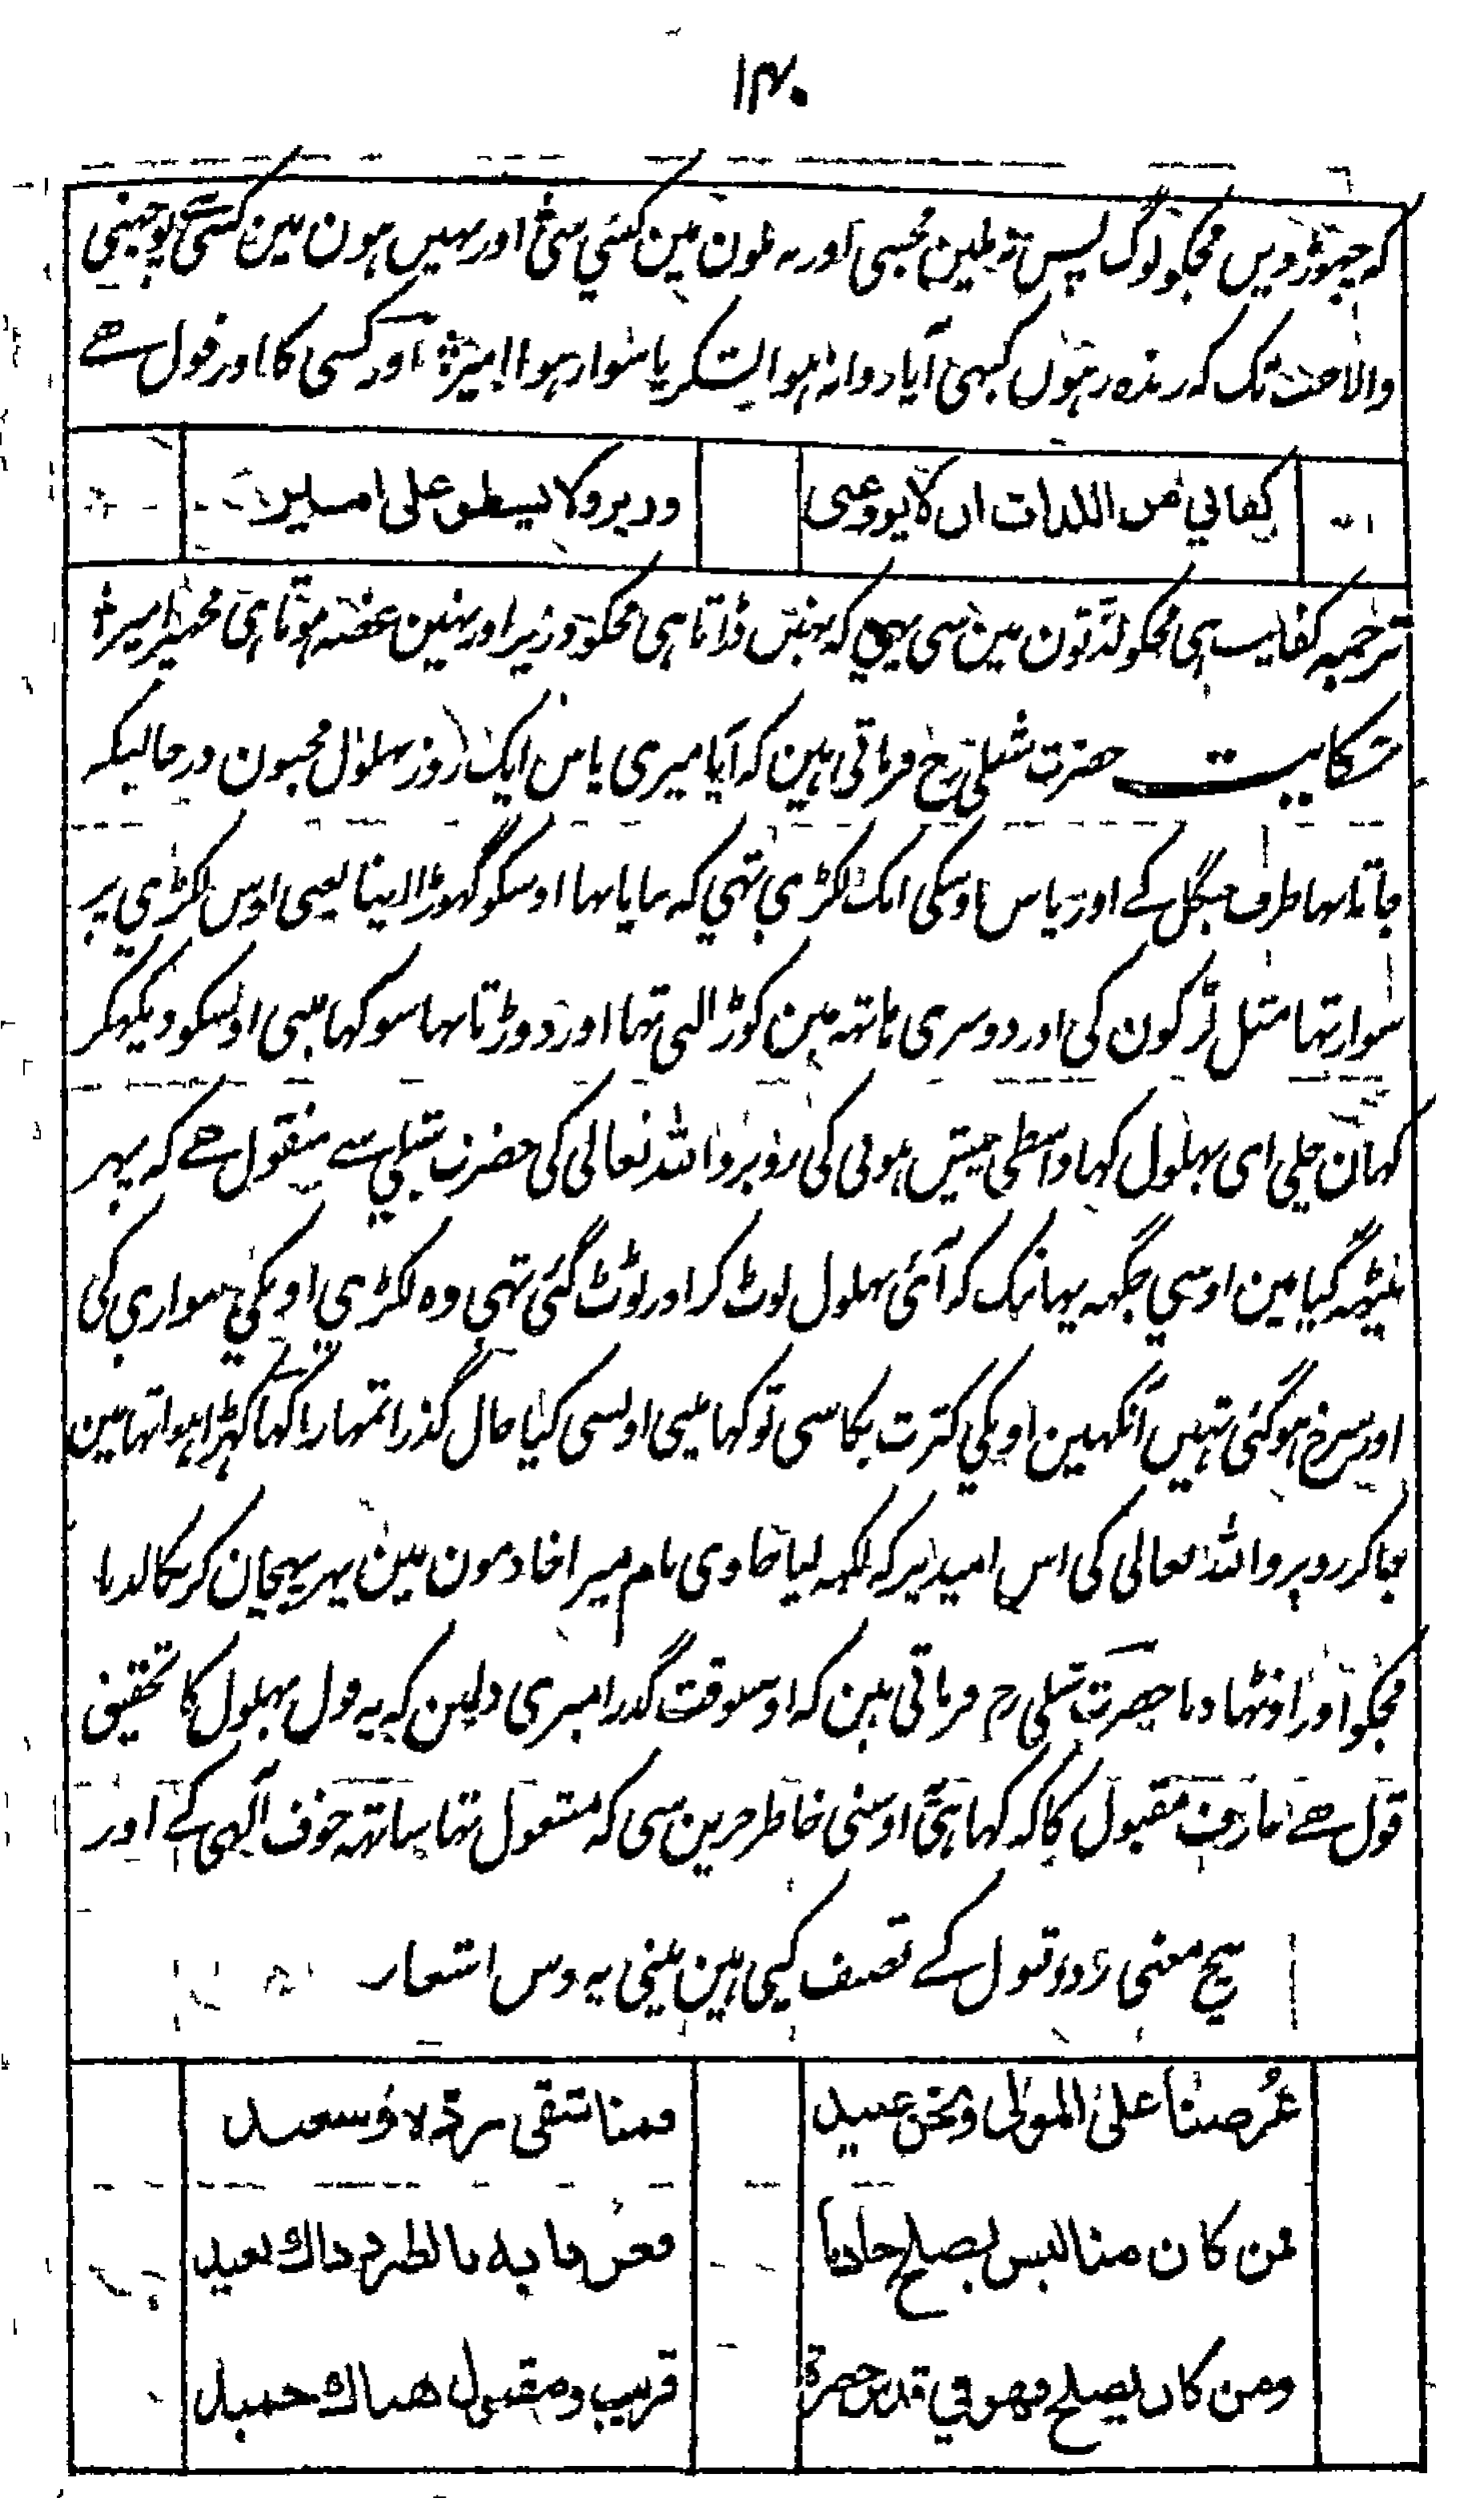 ۱۳۰
کہ چہوڑ دیں مجکو لوگ پس نہ ملین مجہسی اور نہ ملون مین کسی سی اور نہیں ہون مین کسی سی پوچہنی
والا جب تک کہ زندہ رہون کبہی آیا روانہ ہوا لشکر یا سوار ہوا امیر اور کسی کا اور قول ہے
کفاني من اللذات ان لا يروعنی
وزير ولا يسطو علی امير
ترجمہ کفایت ہی مجکو لذتون مین سی یہی کہ نہین ڈراتا ہی مجکو وزیر اور نہین غصہ ہوتا ہی مجہپر امیر
حکایت حضرت شبلی رح فرماتی ہین کہ آیا میری پاس ایک روز بہلول مجنون درحالیکہ
جاتا تہا طرف جنگل کے اور پاس اوسکی ایک لکڑی تہی کہ بنایا تہا اوسکو گہوڑا اپنا یعنی اوس لکڑی پر
سوار تہا مثل لڑکون کی اور دوسری ہاتہہ مین کوڑا لی تہا اور دوڑتا تہا سو کہا مینی اوسکو دیکہکر
کہان چلی ای بہلول کہا واسطی پیش ہونی کی روبرو اللہ تعالی کی حضرت شبلی سے منقول ہے کہ پہر
بیٹہہ گیا مین اوسی جگہہ یہانتک کہ آئی بہلول لوٹ کر اور ٹوٹ گئی تہی وہ لکڑی اونکی سواری کی
اور سرخ ہو گئی تہیں آنکہین اونکی کثرت بکا سی تو کہا مینی اونسی کیا حال گذرا تمہارا کہا کہڑا ہوا تہا مین
جا کر روبرو اللہ تعالی کی اس امید پر کہ لکہہ لیا جاوی نام میرا خادمون مین پہر پہچان کر نکالدیا
مجکو اور اوٹہا دیا حضرت شبلی رح فرماتی ہین کہ اوسوقت گذرا میری دلمین کہ یہ قول بہلول کا تحقیق
قول ہے عارف مقبول کا کہ کہا ہی اوسنی خاطر حزین سی کہ مشغول تہا ساتہہ خوف الہی کے اور
بیچ معنی رد و قبول کے تصنیف کیی ہین مینی یہ دس اشعار
عُرضنا علی المولی ونحن عبيد
فمنا شقی مرد ودُ وسعيد
فمن كان منا ليس يصلح خادما
فعن بابه بالطرد ذاك بعيد
ومن كان يصلح فهو في قدس حضرة
قريب ومقبول هناك حميد